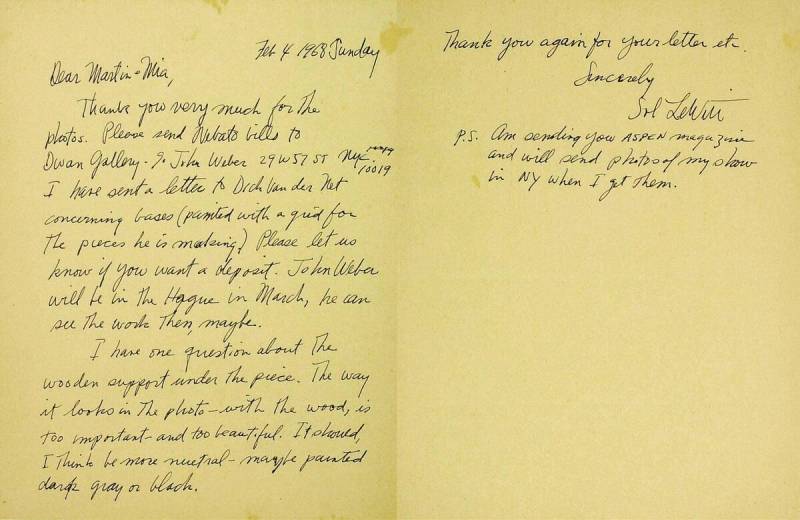 Feb 4 1968 Sunday
Dear Martin + Mia,
Thank you very much for the
photos. Please send Nebato bills to
Dwan Gallery - % John Weber 29 W 57 ST NYC.
10019
I have sent a letter to Dick Van der Net
concerning bases (painted with a grid for
the pieces he is making) Please let us
know if you want a deposit. John Weber
will be in the Hague in March, he can
see the work then, maybe.
I have one question about the
wooden support under the piece. The way
it looks in the photo - with the wood, is
too important - and too beautiful. It should,
I think be more nuetral - maybe painted
dark gray or black.
Thank you again for your letter etc.
Sincerely
Sol LeWitt
P.S. Am sending you ASPEN magazine
and will send photos of my show
in NY when I get them.